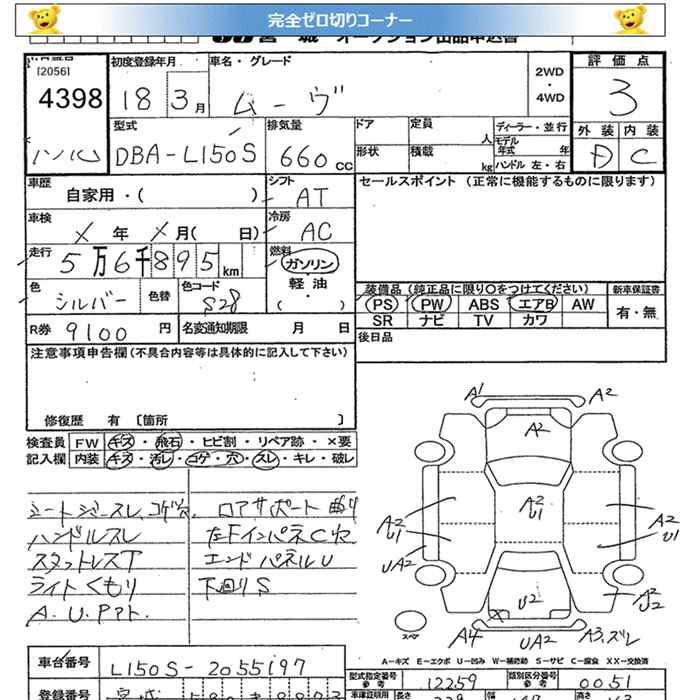 完全ゼロ切りコーナー
宮城 オークション出品申込書
[2056]
4398
初度登録年月
18 3月
車名・グレード
ムーヴ
2WD
・
4WD
評価点
3
外装 内装
D C
型式
DBA-L150S
排気量
660cc
ドア 定員 人
形状 積載 kg
ディーラー・並行
モデル年式 年
ハンドル 左・右
車歴
自家用・( )
シフト
AT
セールスポイント (正常に機能するものに限ります)
車検
X 年 X 月( 日)
冷房
AC
走行
5万6千895km
燃料
ガソリン
軽油
色
シルバー
色替
色コード
S28
装備品(純正品に限り○をつけてください) 新車保証書
PS PW ABS エアB AW 有・無
SR ナビ TV カワ
R券 9100円 名変通知期限 月 日
後日品
注意事項申告欄(不具合内容等は具体的に記入して下さい)
修復歴 有 〔箇所 〕
検査員 FW キズ・飛石・ヒビ割・リペア跡・×要
記入欄 内装 キズ・汚レ・コゲ・穴・スレ・キレ・破レ
シートジャースレ、コゲ穴
ハンドルスレ
スタットレスT
ライトくもり
A.U.Pアト.
ロアサポート曲り
左FインパネCヤ
エンドパネルU
下回りS
A1
A2
A2
A2
U1
A2
U1
UA2
A2
U1
A2
U2
U2
スペア
A4
UA2
A3.ズレ
A-キズ E-エクボ U-凹み W-補助跡 S-サビ C-腐食 XX-交換済
車台番号
L150S-2055197
型式指定番号 参考
12259
類別区分番号 参考
0051
登録番号
宮城
車庫証明用 長さ 幅 高さ